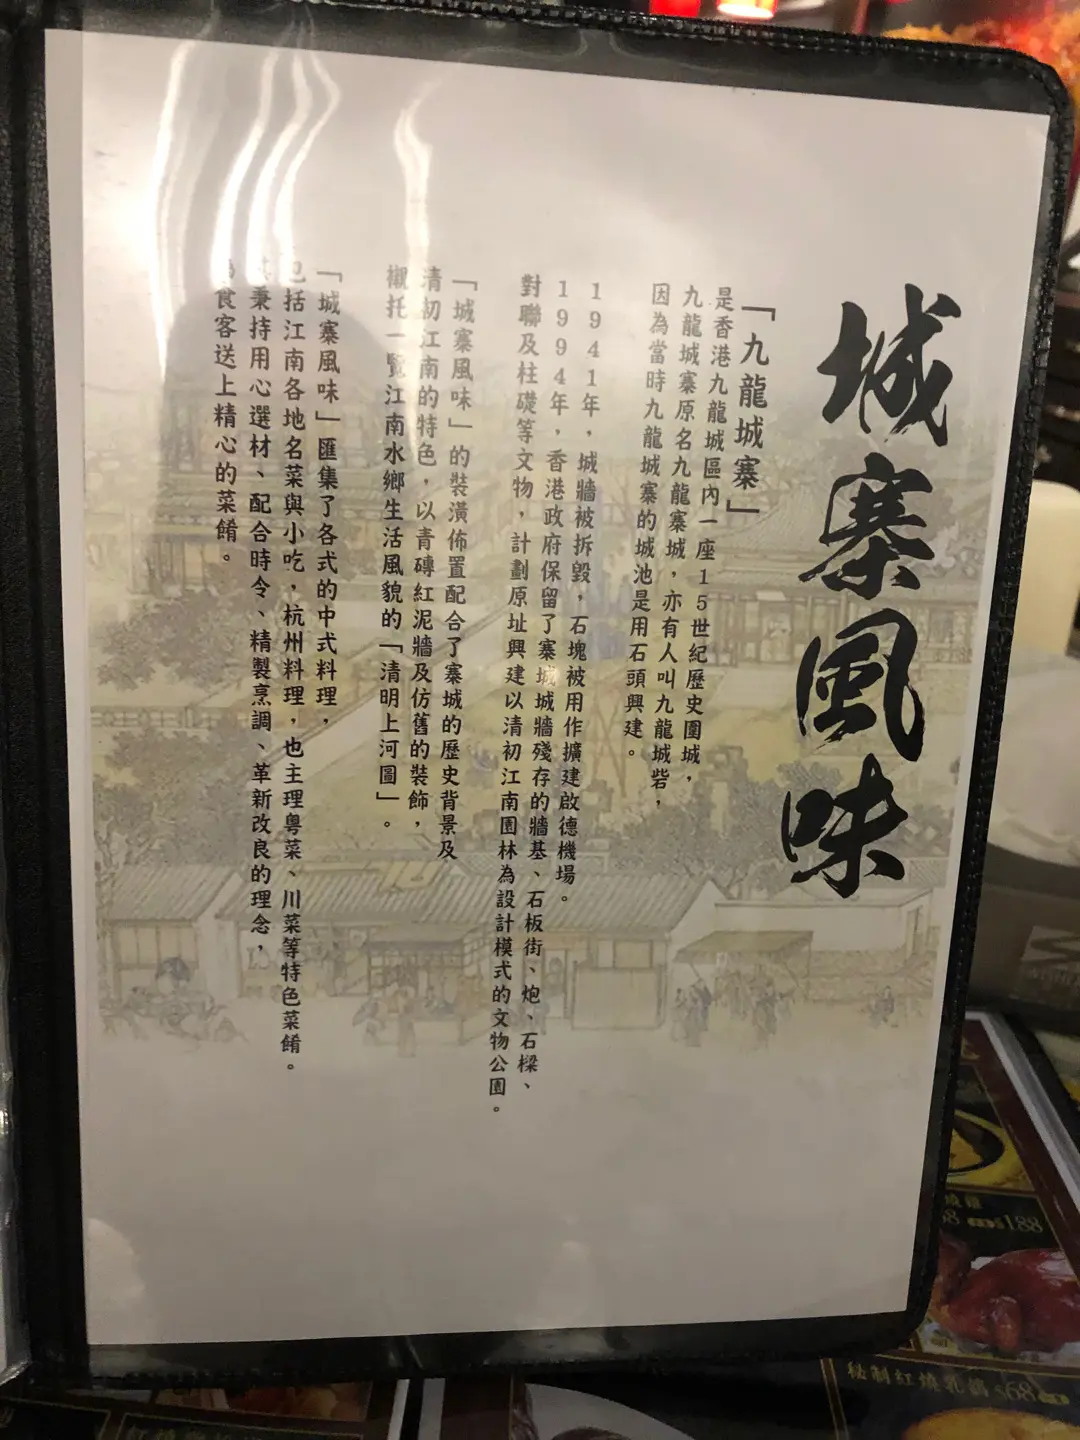 城寨風味
「九龍城寨」
是香港九龍城區內一座15世紀歷史圍城，
九龍城寨原名九龍寨城，亦有人叫九龍城砦，
因為當時九龍城寨的城池是用石頭興建。
1941年，城牆被拆毀，石塊被用作擴建啟德機場。
1994年，香港政府保留了寨城城牆殘存的牆基、石板街、炮、石樑、
對聯及柱礎等文物，計劃原址興建以清初江南園林為設計模式的文物公園。
「城寨風味」的裝潢佈置配合了寨城的歷史背景及
清初江南的特色，以青磚紅泥牆及仿舊的裝飾，
襯托一覽江南水鄉生活風貌的「清明上河圖」。
「城寨風味」匯集了各式的中式料理，
包括江南各地名菜與小吃，杭州料理，也主理粵菜、川菜等特色菜餚。
秉持用心選材、配合時令、精製烹調、革新改良的理念，
食客送上精心的菜餚。
188
秘制紅燒乳鴿 $68